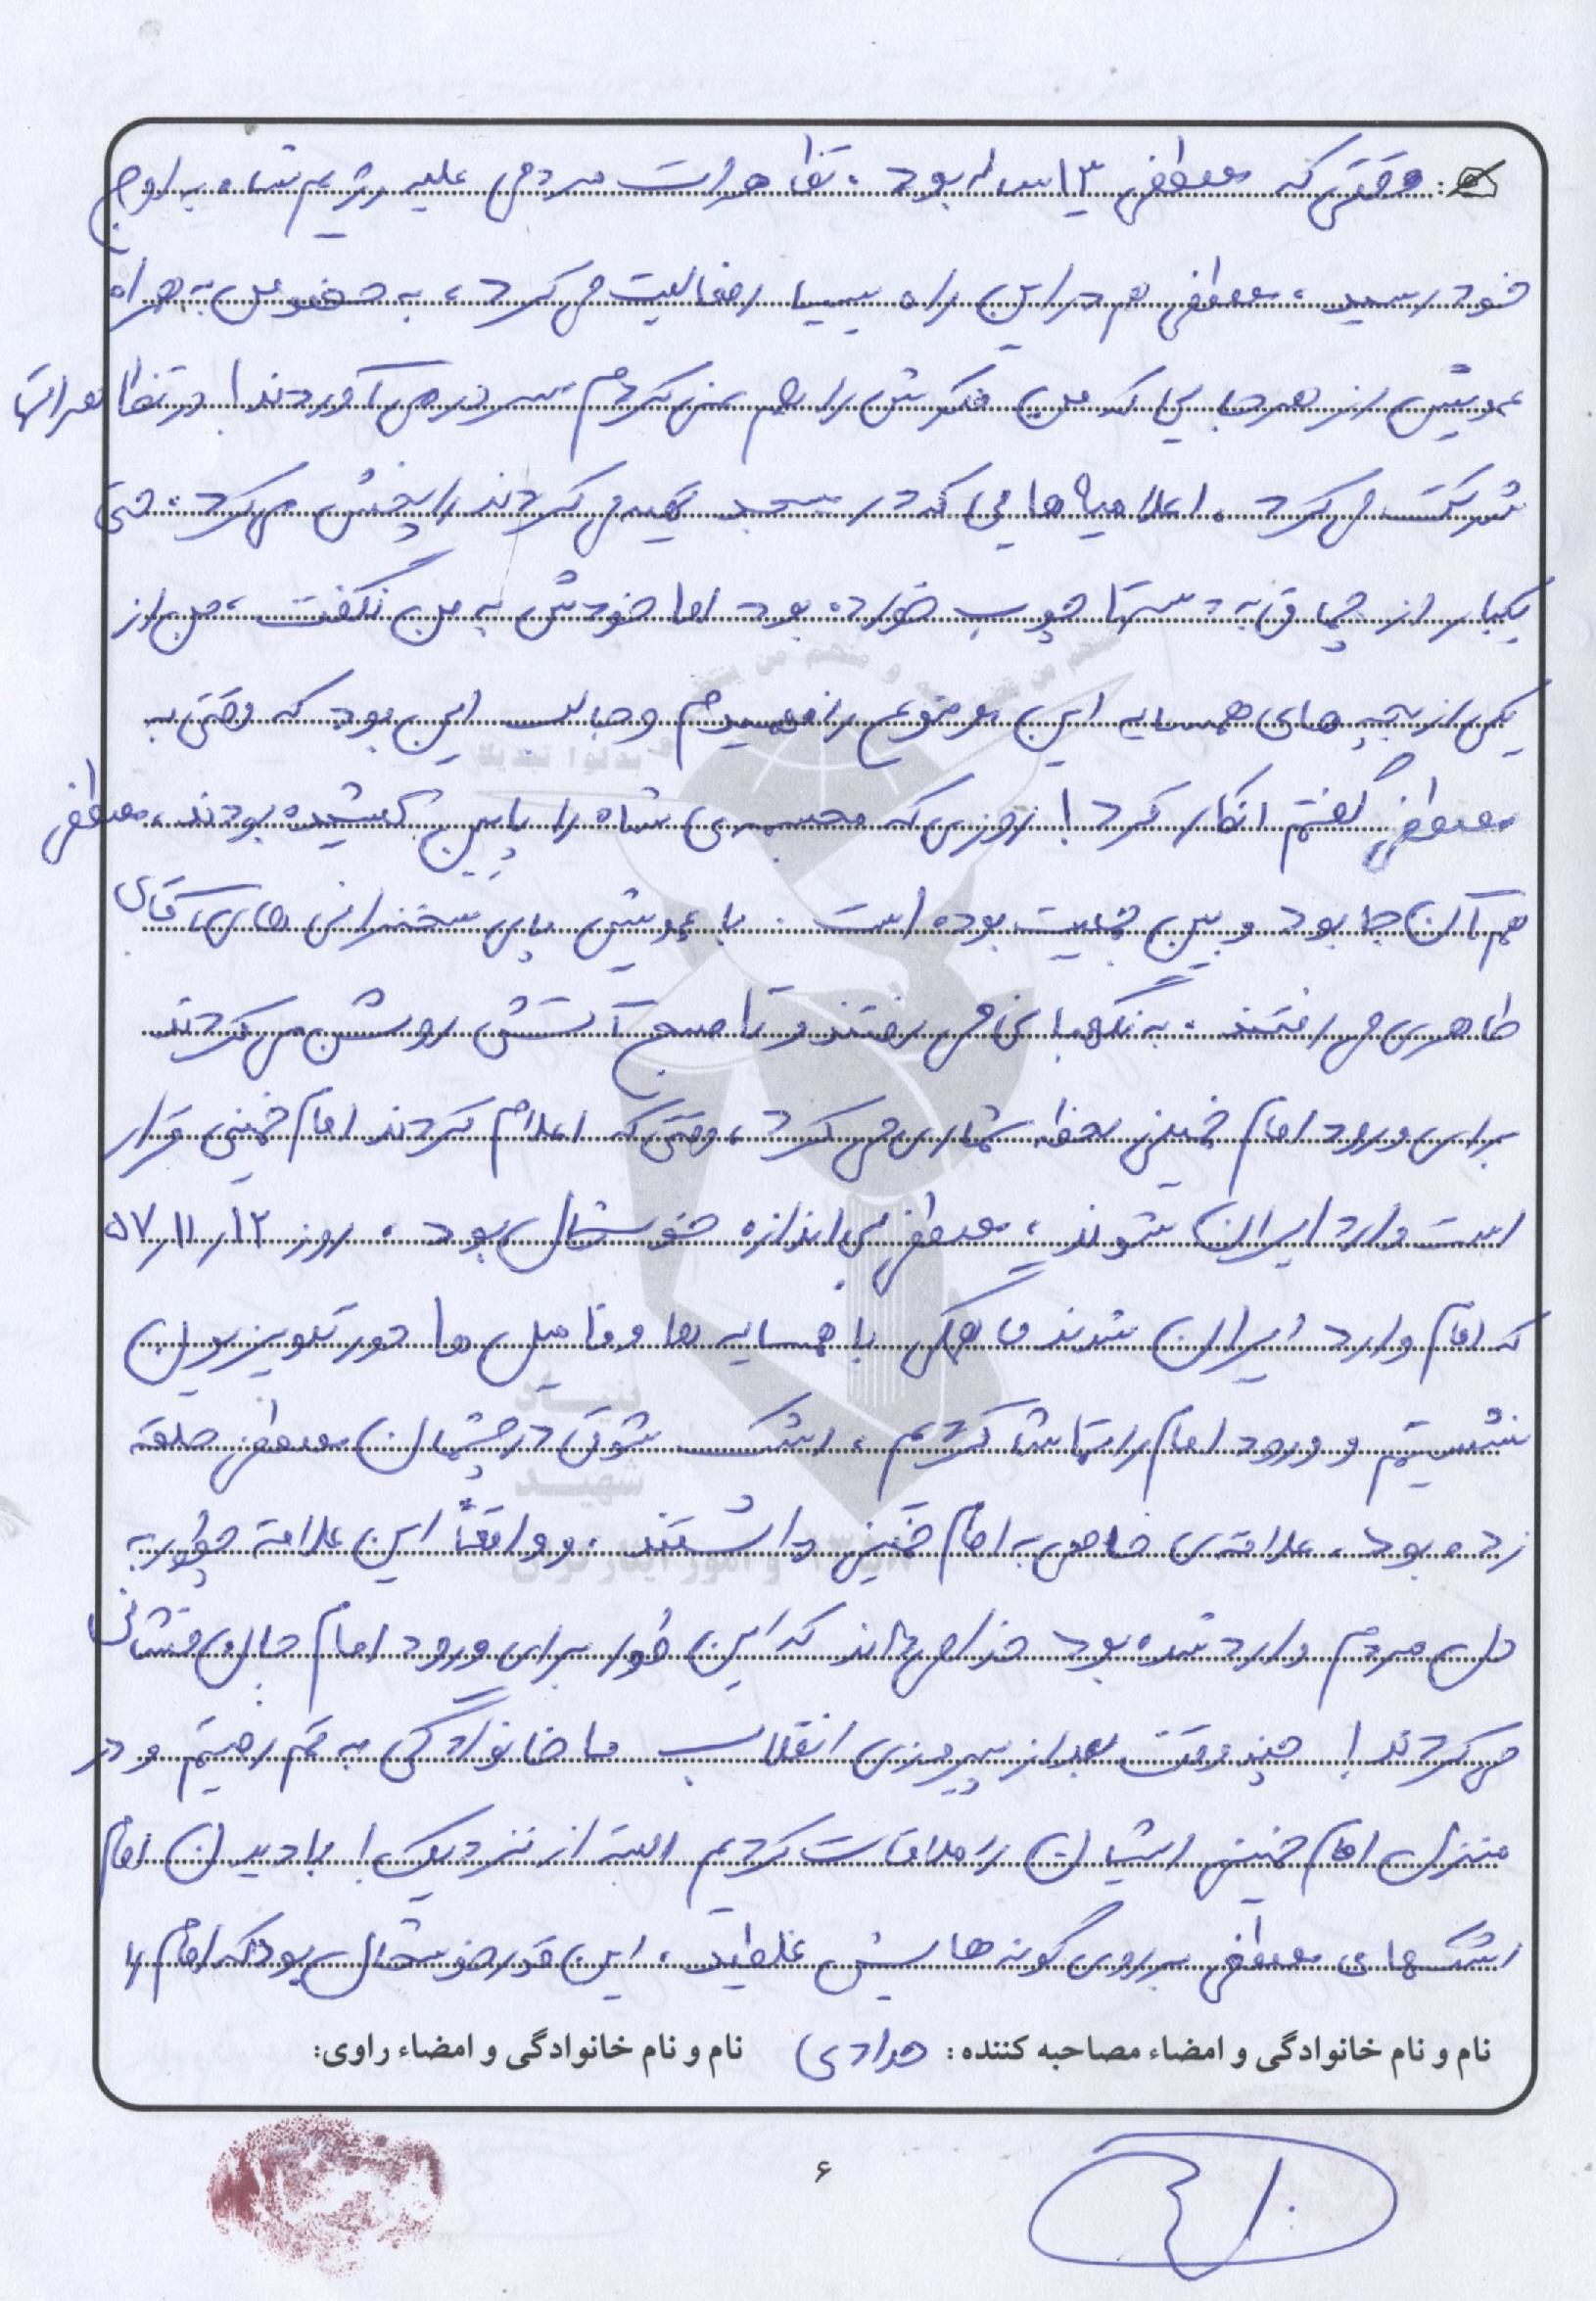 وقتی که مصطفی ۱۳ ساله بود، تظاهرات مردمی علیه رژیم شاه به اوج
خود رسید، مصطفی هم در این راه بسیار فعالیت می کرد، به خصوص به همراه
عمویش از هر جایی که من فکرش را هم نمی کردم سر در می آوردند! در تظاهراتها
شرکت می کرد. اعلامیه هایی که در مسجد تهیه می کردند را پخش می کرد، حتی
یکبار از چماق به دستها چوب خورده بود اما خودش به من نگفت، من از
یکی از بچه های همسایه این موضوع را فهمیدم و جالب این بود که وقتی به
مصطفی گفتم انکار کرد! روزی که مجسمه ی شاه را پایین کشیده بودند، مصطفی
هم آن جا بود و بین جمعیت بوده است. با عمویش پای سخنرانی های آقای
طاهری می رفتند. به نگهبانی می رفتند و تا صبح آتش روشن می کردند
برای ورود امام خمینی لحظه شماری می کرد، وقتی که اعلام کردند امام خمینی قرار
است وارد ایران شوند، مصطفی بی اندازه خوشحال بود. روز ۱۲/۱۱/۵۷
که امام وارد ایران شدند ما همگی با همسایه ها و فامیل ها دور تلویزیون
نشستیم و ورود امام را تماشا کردیم، اشک شوق در چشمان مصطفی حلقه
زده بود. علاقه ی خاصی به امام خمینی داشتند. و واقعاً این علاقه چطور به
دل مردم وارد شده بود خدا می داند که این طور برای ورود امام جان فشانی
می کردند! چند وقت بعد از پیروزی انقلاب ما خانوادگی به قم رفتیم و در
منزل امام خمینی ایشان را ملاقات کردیم البته از نزدیک! با دیدن امام
اشکهای مصطفی بر روی گونه هایش غلطید، این قدر خوشحال بود که امام را
نام و نام خانوادگی و امضاء مصاحبه کننده: مرادی نام و نام خانوادگی و امضاء راوی:
۶